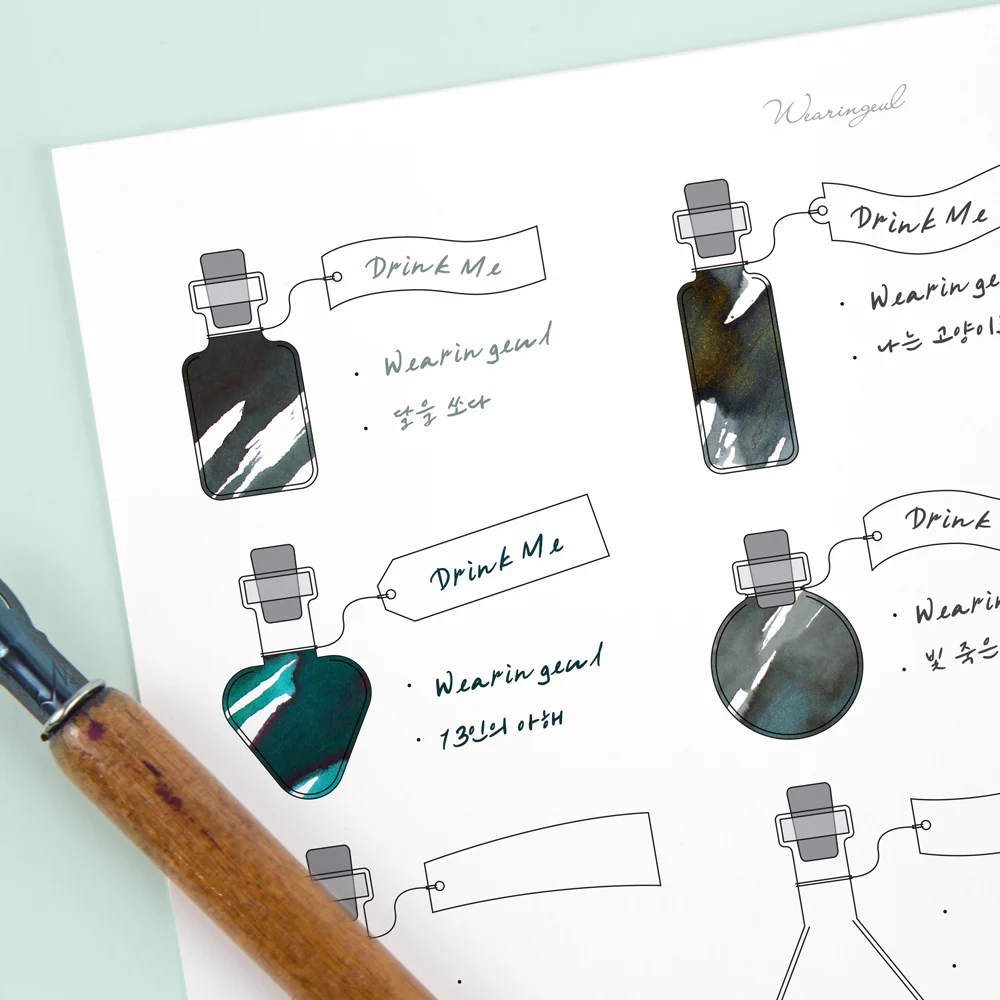 Wearingeul
Drink Me
Wearingeul
달을 쏘다
Drink Me
Wearinge
나는 고양이로
Drink Me
Wearingeul
13인의 아해
Drink
Wearin
빛 죽은